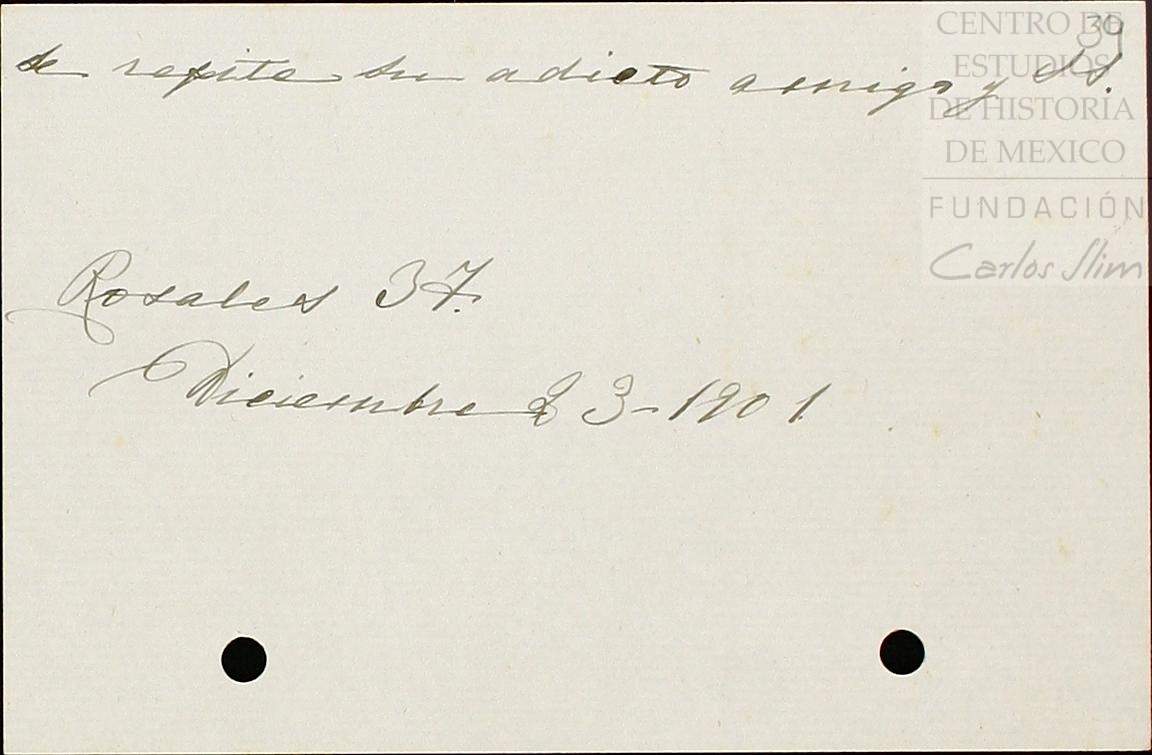 39
se repite su adicto amigo y SS.
Rosales 37.
Diciembre 23-1901.
CENTRO DE
ESTUDIOS
DE HISTORIA
DE MEXICO
FUNDACIÓN
Carlos Slim